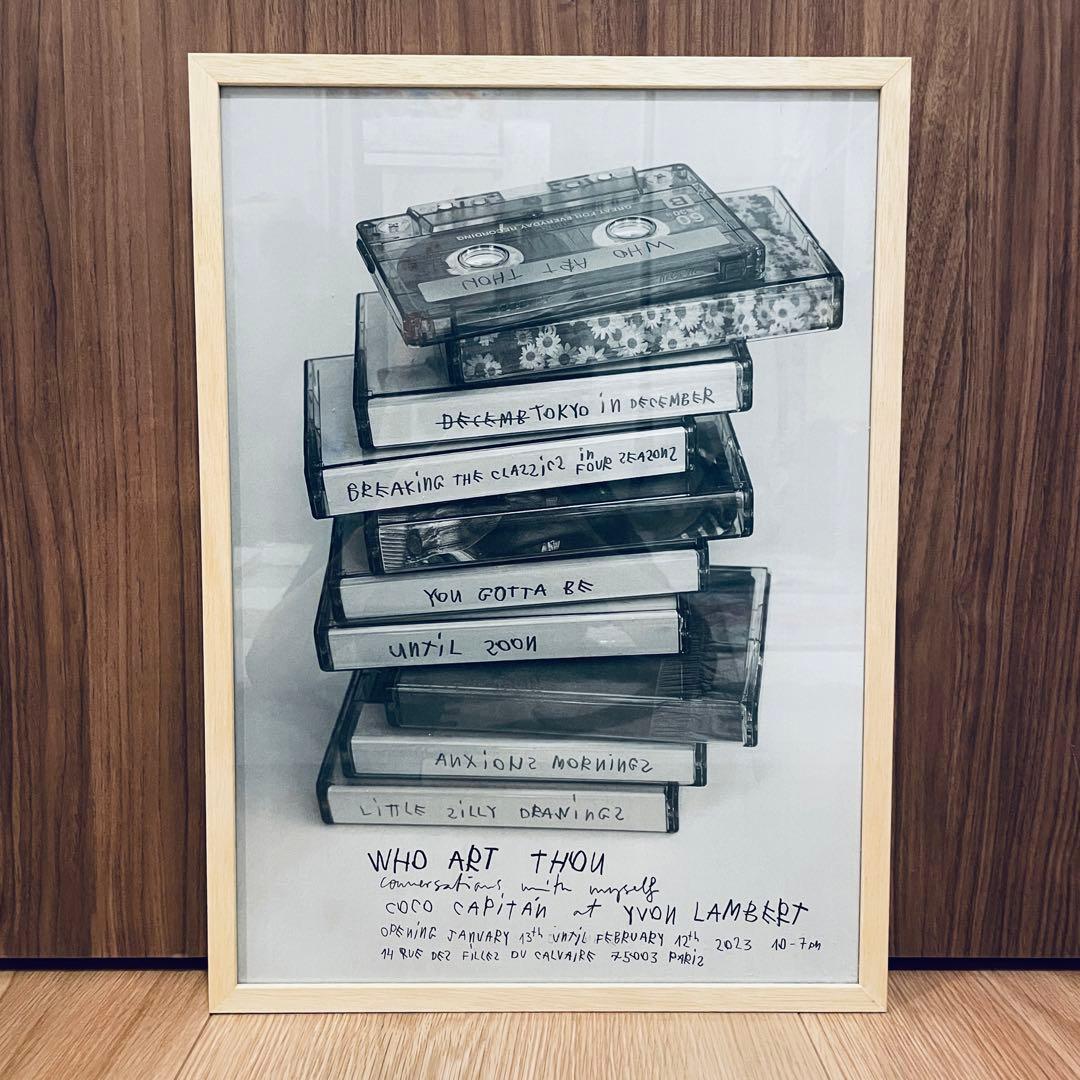 GREAT FOR EVERYDAY RECORDING
B
60
WHO ART THOU
DECEMB TOKYO in DECEMBER
BREAKING THE CLASSICS in FOUR SEASONS
YOU GOTTA BE
UNTIL SOON
ANXIOUS MORNINGS
LITTLE SILLY DRAWINGS
WHO ART THOU
conversations with myself
COCO CAPITÁN at YVON LAMBERT
OPENING JANUARY 13th UNTIL FEBRUARY 12th 2023 10-7pm
14 RUE DES FILLES DU CALVAIRE 75003 PARIS